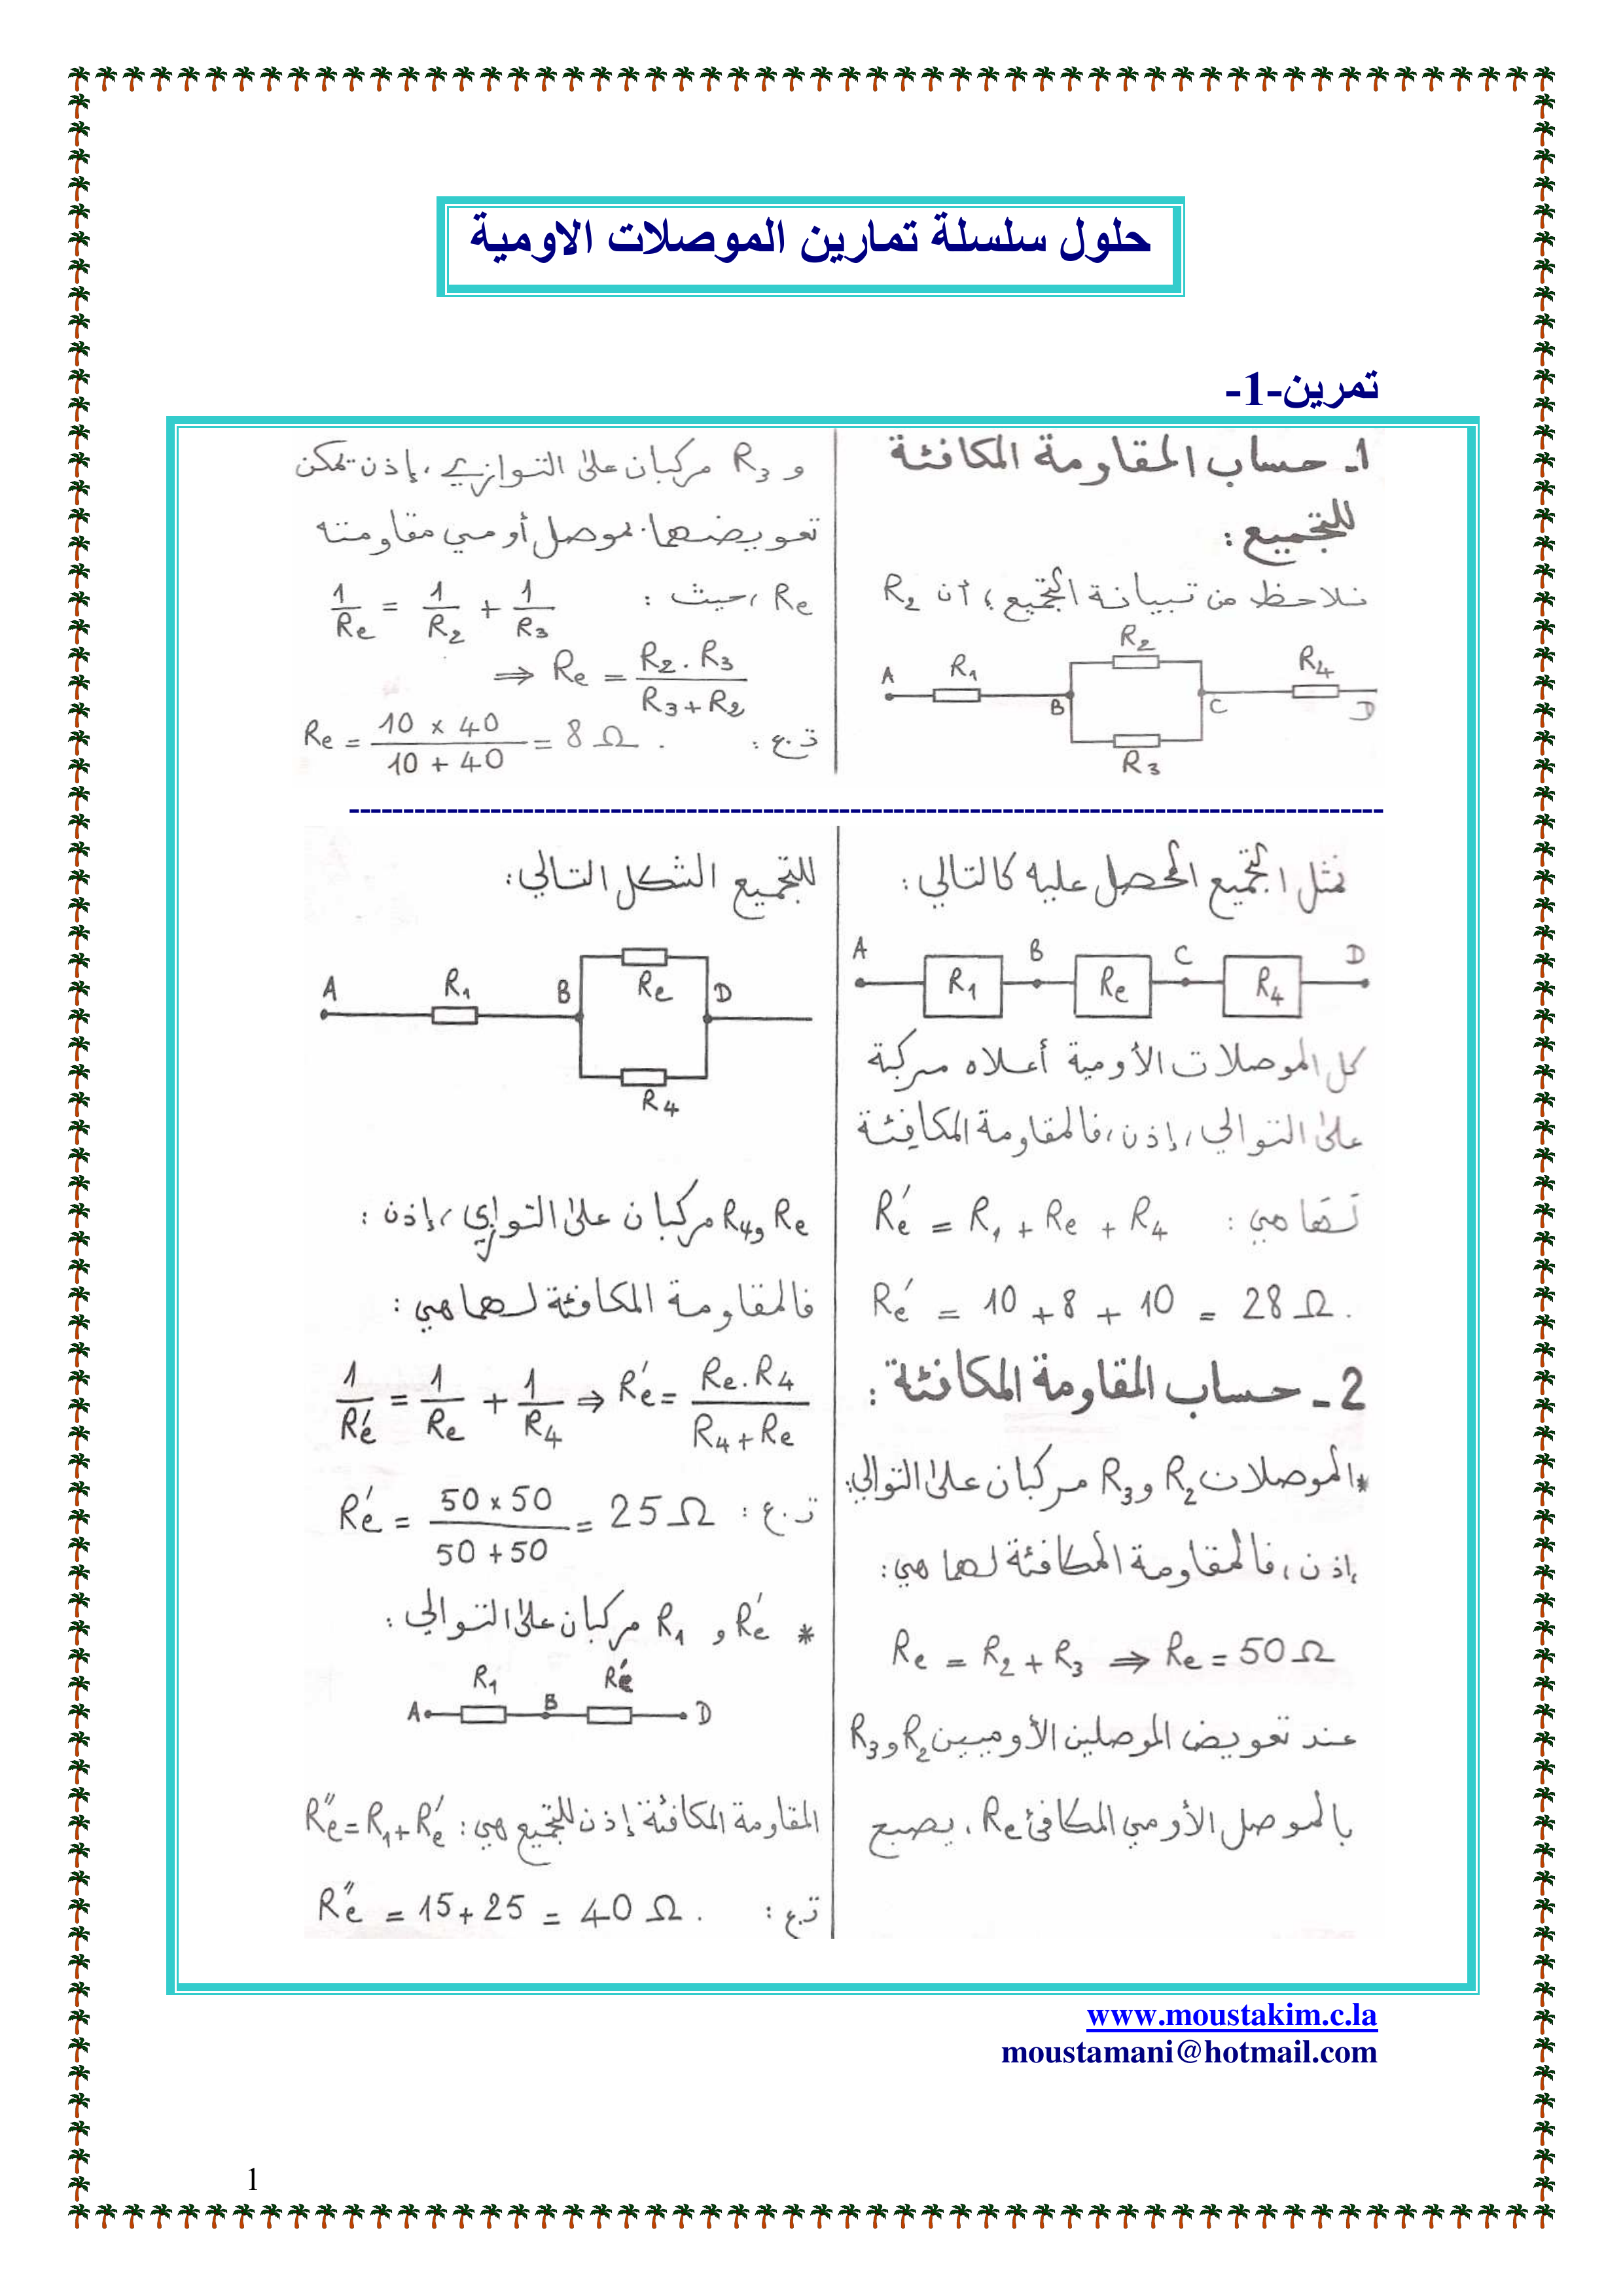 حلول سلسلة تمارين الموصلات الاومية
تمرين-1-
1ـ حساب المقاومة المكافئة
للتجميع :
نلاحظ من تبيانة التجميع، أن R2
A R1 B R2 R3 C R4 D
و R3 مركبان على التوازي، إذن يمكن
تعويضهما بموصل أومي مقاومته
Re، حيث : 1/Re = 1/R2 + 1/R3
⇒ Re = R2 . R3 / R3 + R2
ت.ع : Re = 10 x 40 / 10 + 40 = 8 Ω .
نمثل التجميع المحصل عليه كالتالي :
A R1 B Re C R4 D
كل الموصلات الأومية أعلاه مركبة
على التوالي، إذن، فالمقاومة المكافئة
لها هي : Re' = R1 + Re + R4
Re' = 10 + 8 + 10 = 28 Ω .
2 ـ حساب المقاومة المكافئة :
*الموصلات R2 و R3 مركبان على التوالي:
إذن، فالمقاومة المكافئة لهما هي:
Re = R2 + R3 ⇒ Re = 50 Ω
عند تعويض الموصلين الأوميين R2 و R3
بالموصل الأومي المكافئ Re، يصبح
للتجميع الشكل التالي:
A R1 B Re D R4
Re و R4 مركبان على التوازي، إذن :
فالمقاومة المكافئة لهما هي :
1/Re' = 1/Re + 1/R4 ⇒ Re' = Re . R4 / R4 + Re
ت.ع : Re' = 50 x 50 / 50 + 50 = 25 Ω
* Re' و R1 مركبان على التوالي :
A R1 B Re' D
المقاومة المكافئة إذن للتجميع هي : Re'' = R1 + Re'
ت.ع : Re'' = 15 + 25 = 40 Ω .
www.moustakim.c.la
moustamani@hotmail.com
1